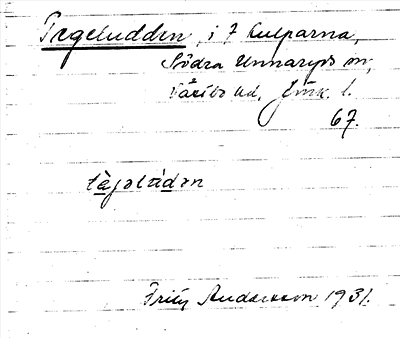 Tegeludden, i 7 Kulparna,
Södra Unnaryds sn,
Västbo hd, Jönk. l.
67.
tèjǝlùdǝn
Fritz Andersson 1931.